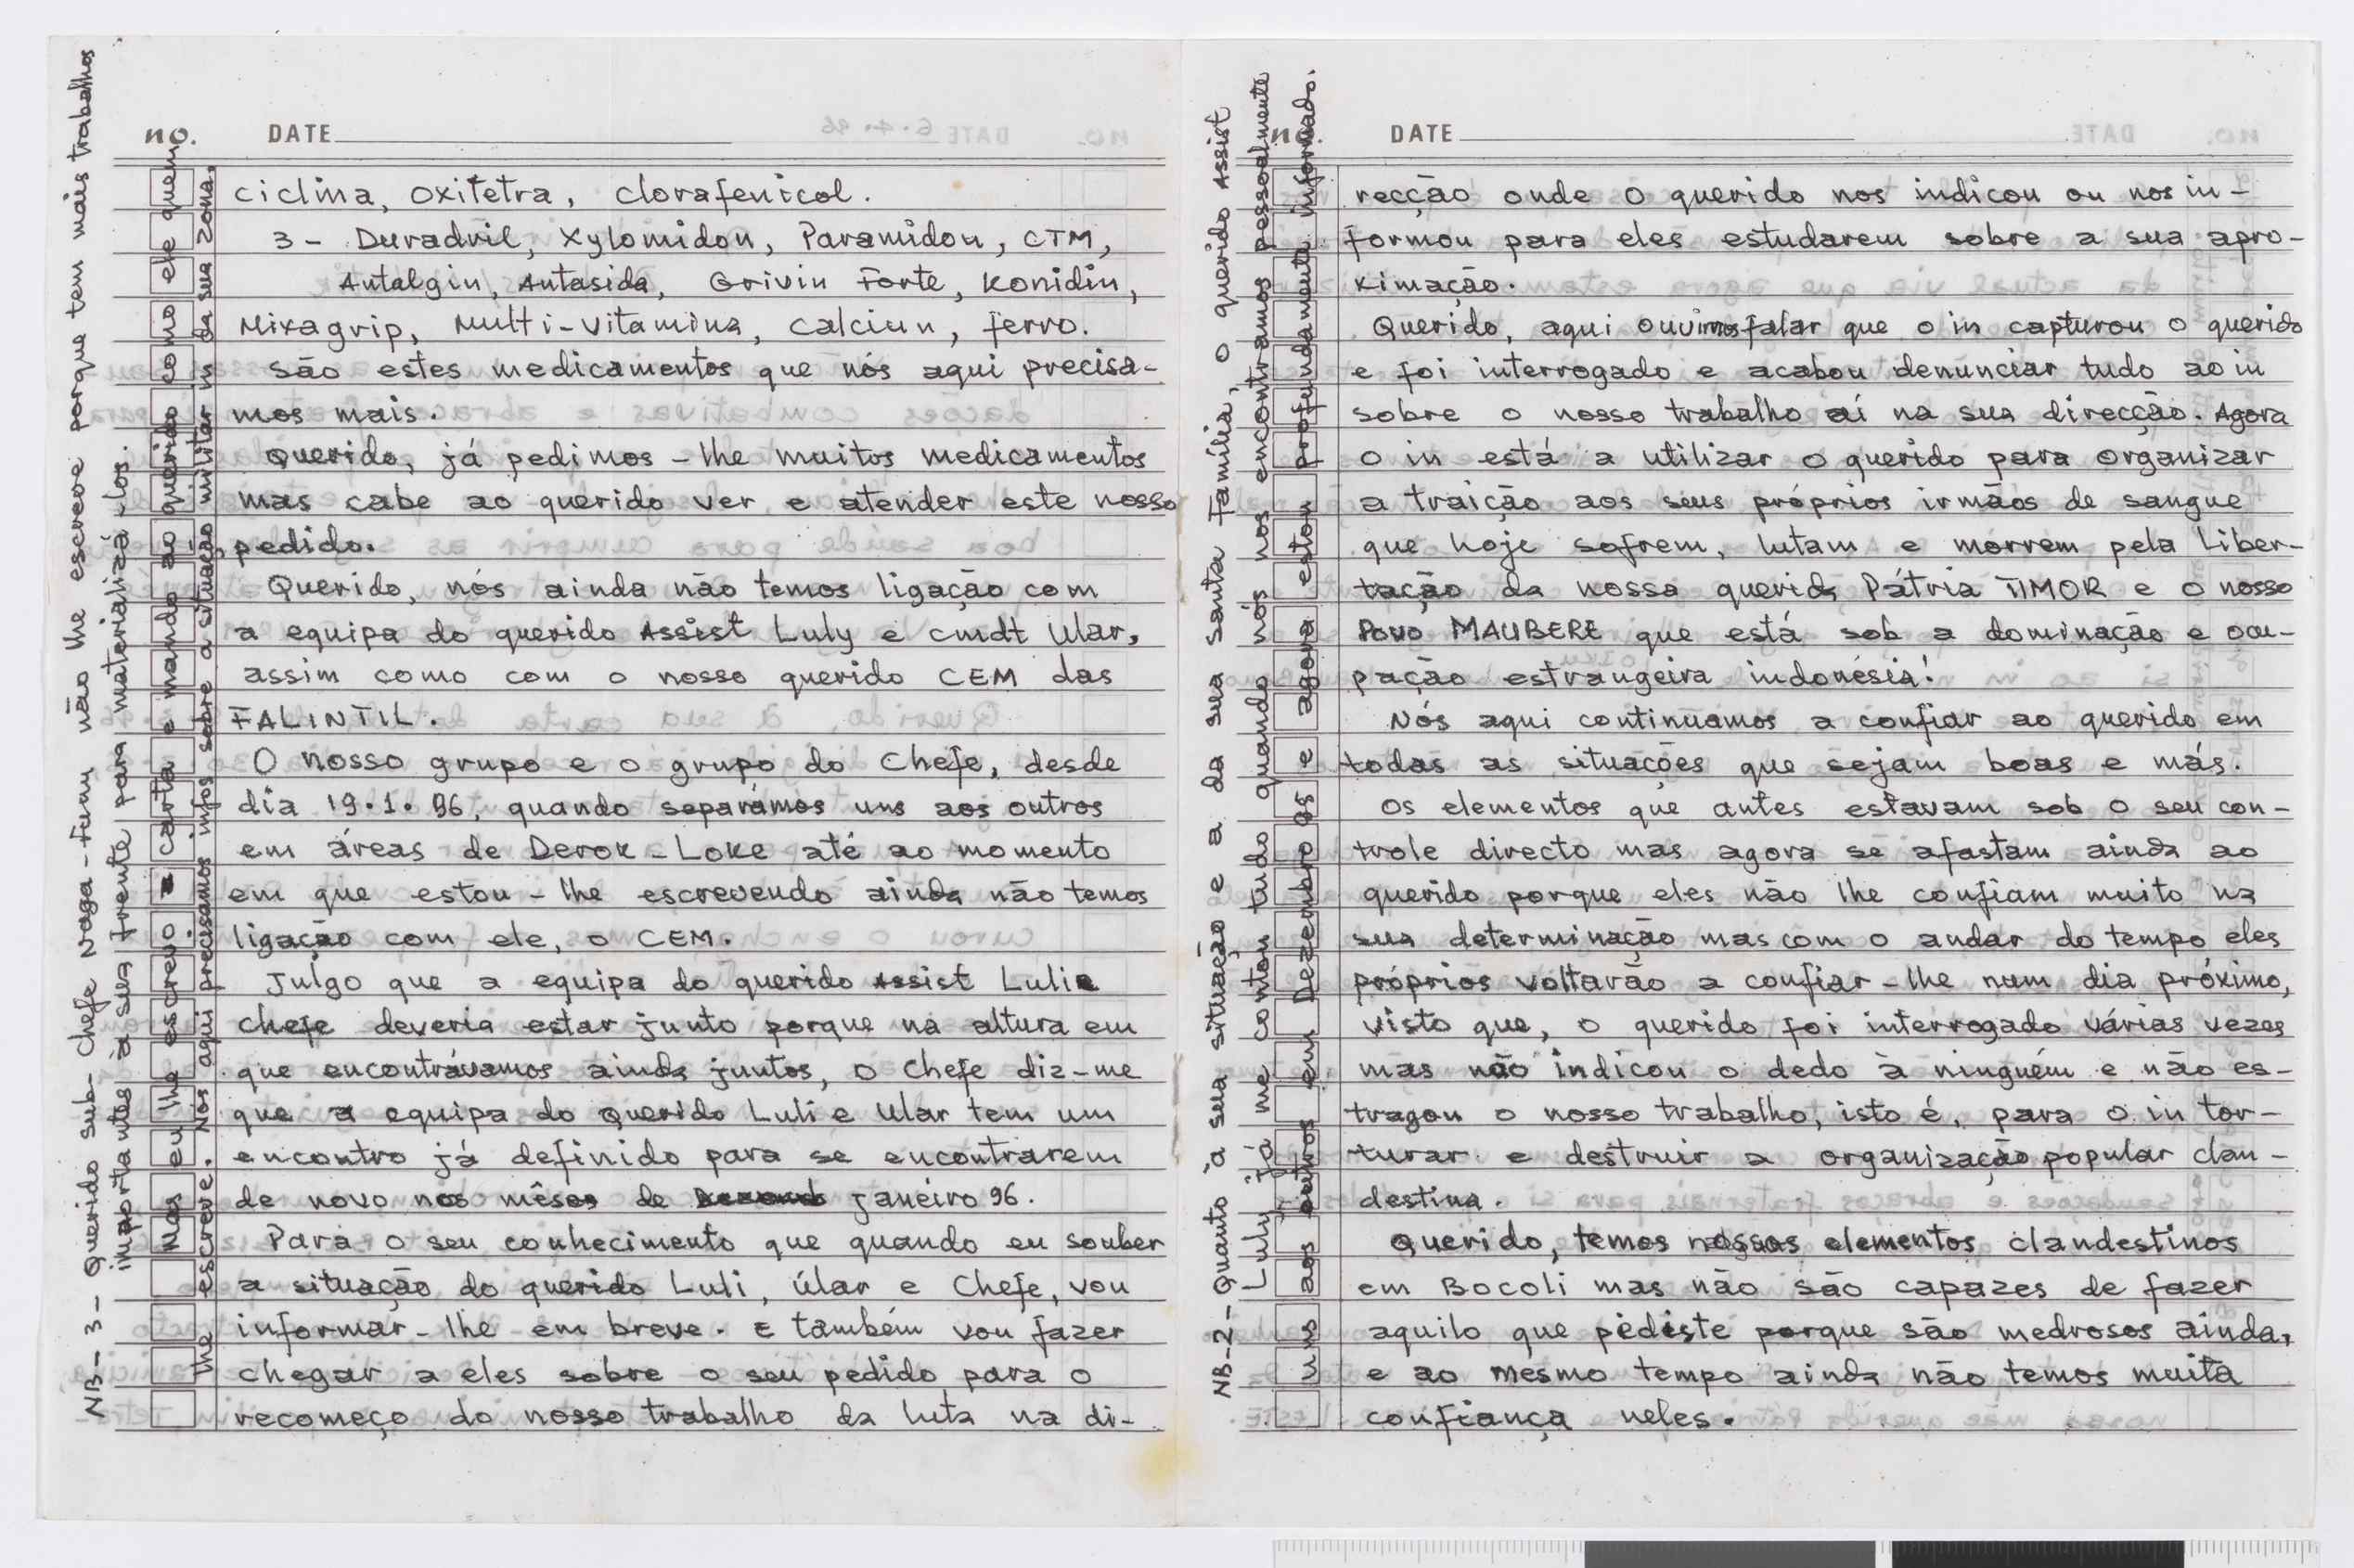 no. DATE
ciclina, oxitetra, clorafenicol.
3 - Duradril, Xylomidon, Paramidon, CTM,
Antalgin, Antasida, Grivin Forte, Konidin,
Mixagrip, Multi-vitamina, calciun, ferro.
são estes medicamentos que nós aqui precisa-
mos mais.
Querido, já pedimos-lhe muitos medicamentos
mas cabe ao querido ver e atender este nosso
pedido.
Querido, nós ainda não temos ligação com
a equipa do querido Assist Luly e cmdt Ular,
assim como com o nosso querido CEM das
FALINTIL.
O nosso grupo e o grupo do Chefe, desde
dia 19.1.96, quando separámos uns aos outros
em áreas de Derok-Loke até ao momento
em que estou-lhe escrevendo ainda não temos
ligação com ele, o CEM.
Julgo que a equipa do querido Assist Luli e
chefe deveria estar junto porque na altura em
que encontrávamos ainda juntos, o Chefe diz-me
que a equipa do Querido Luli e Ular tem um
encontro já definido para se encontrarem
de novo nos mêses de janeiro 96.
Para o seu conhecimento que quando eu souber
a situação do querido Luli, úlar e Chefe, vou
informar-lhe em breve. E também vou fazer
chegar a eles sobre o seu pedido para o
recomeço do nosso trabalho da luta na di-
NB-3- Querido sub-Chefe Naga-Funu não lhe escreve porque tem mais trabalhos
importantes à sua frente para materializá-los.
Mas eu lhe escrevo a carta e mando ao querido como ele quem
lhe escreve. Nós aqui precisamos infos sobre a situação militar in da sua zona.
no. DATE
recção onde o querido nos indicou ou nos in-
formou para eles estudarem sobre a sua apro-
ximação.
Querido, aqui ouvimos falar que o in capturou o querido
e foi interrogado e acabou denunciar tudo ao in
sobre o nosso trabalho aí na sua direcção. Agora
o in está a utilizar o querido para organizar
a traição aos seus próprios irmãos de sangue
que hoje sofrem, lutam e morrem pela liber-
tação da nossa querida Pátria TIMOR e o nosso
Povo MAUBERE que está sob a dominação e ocu-
pação estrangeira indonésia!
Nós aqui continuamos a confiar ao querido em
todas as situações que sejam boas e más.
Os elementos que antes estavam sob o seu con-
trole directo mas agora se afastam ainda ao
querido porque eles não lhe confiam muito na
sua determinação mas com o andar do tempo eles
próprios voltarão a confiar-lhe num dia próximo,
visto que, o querido foi interrogado várias vezes
mas não indicou o dedo à ninguém e não es-
tragou o nosso trabalho, isto é, para o in tor-
turar e destruir a organização popular clan-
destina.
Querido, temos nossos elementos clandestinos
em Bocoli mas não são capazes de fazer
aquilo que pediste porque são medrosos ainda,
e ao mesmo tempo ainda não temos muita
confiança neles.
NB-2- Quanto à sua situação e a da sua santa Família, o querido Assist
Luly já me contou tudo quando nós nos encontramos pessoalmente
uns aos outros em Dezembro 95 e agora estou profundamente informado.